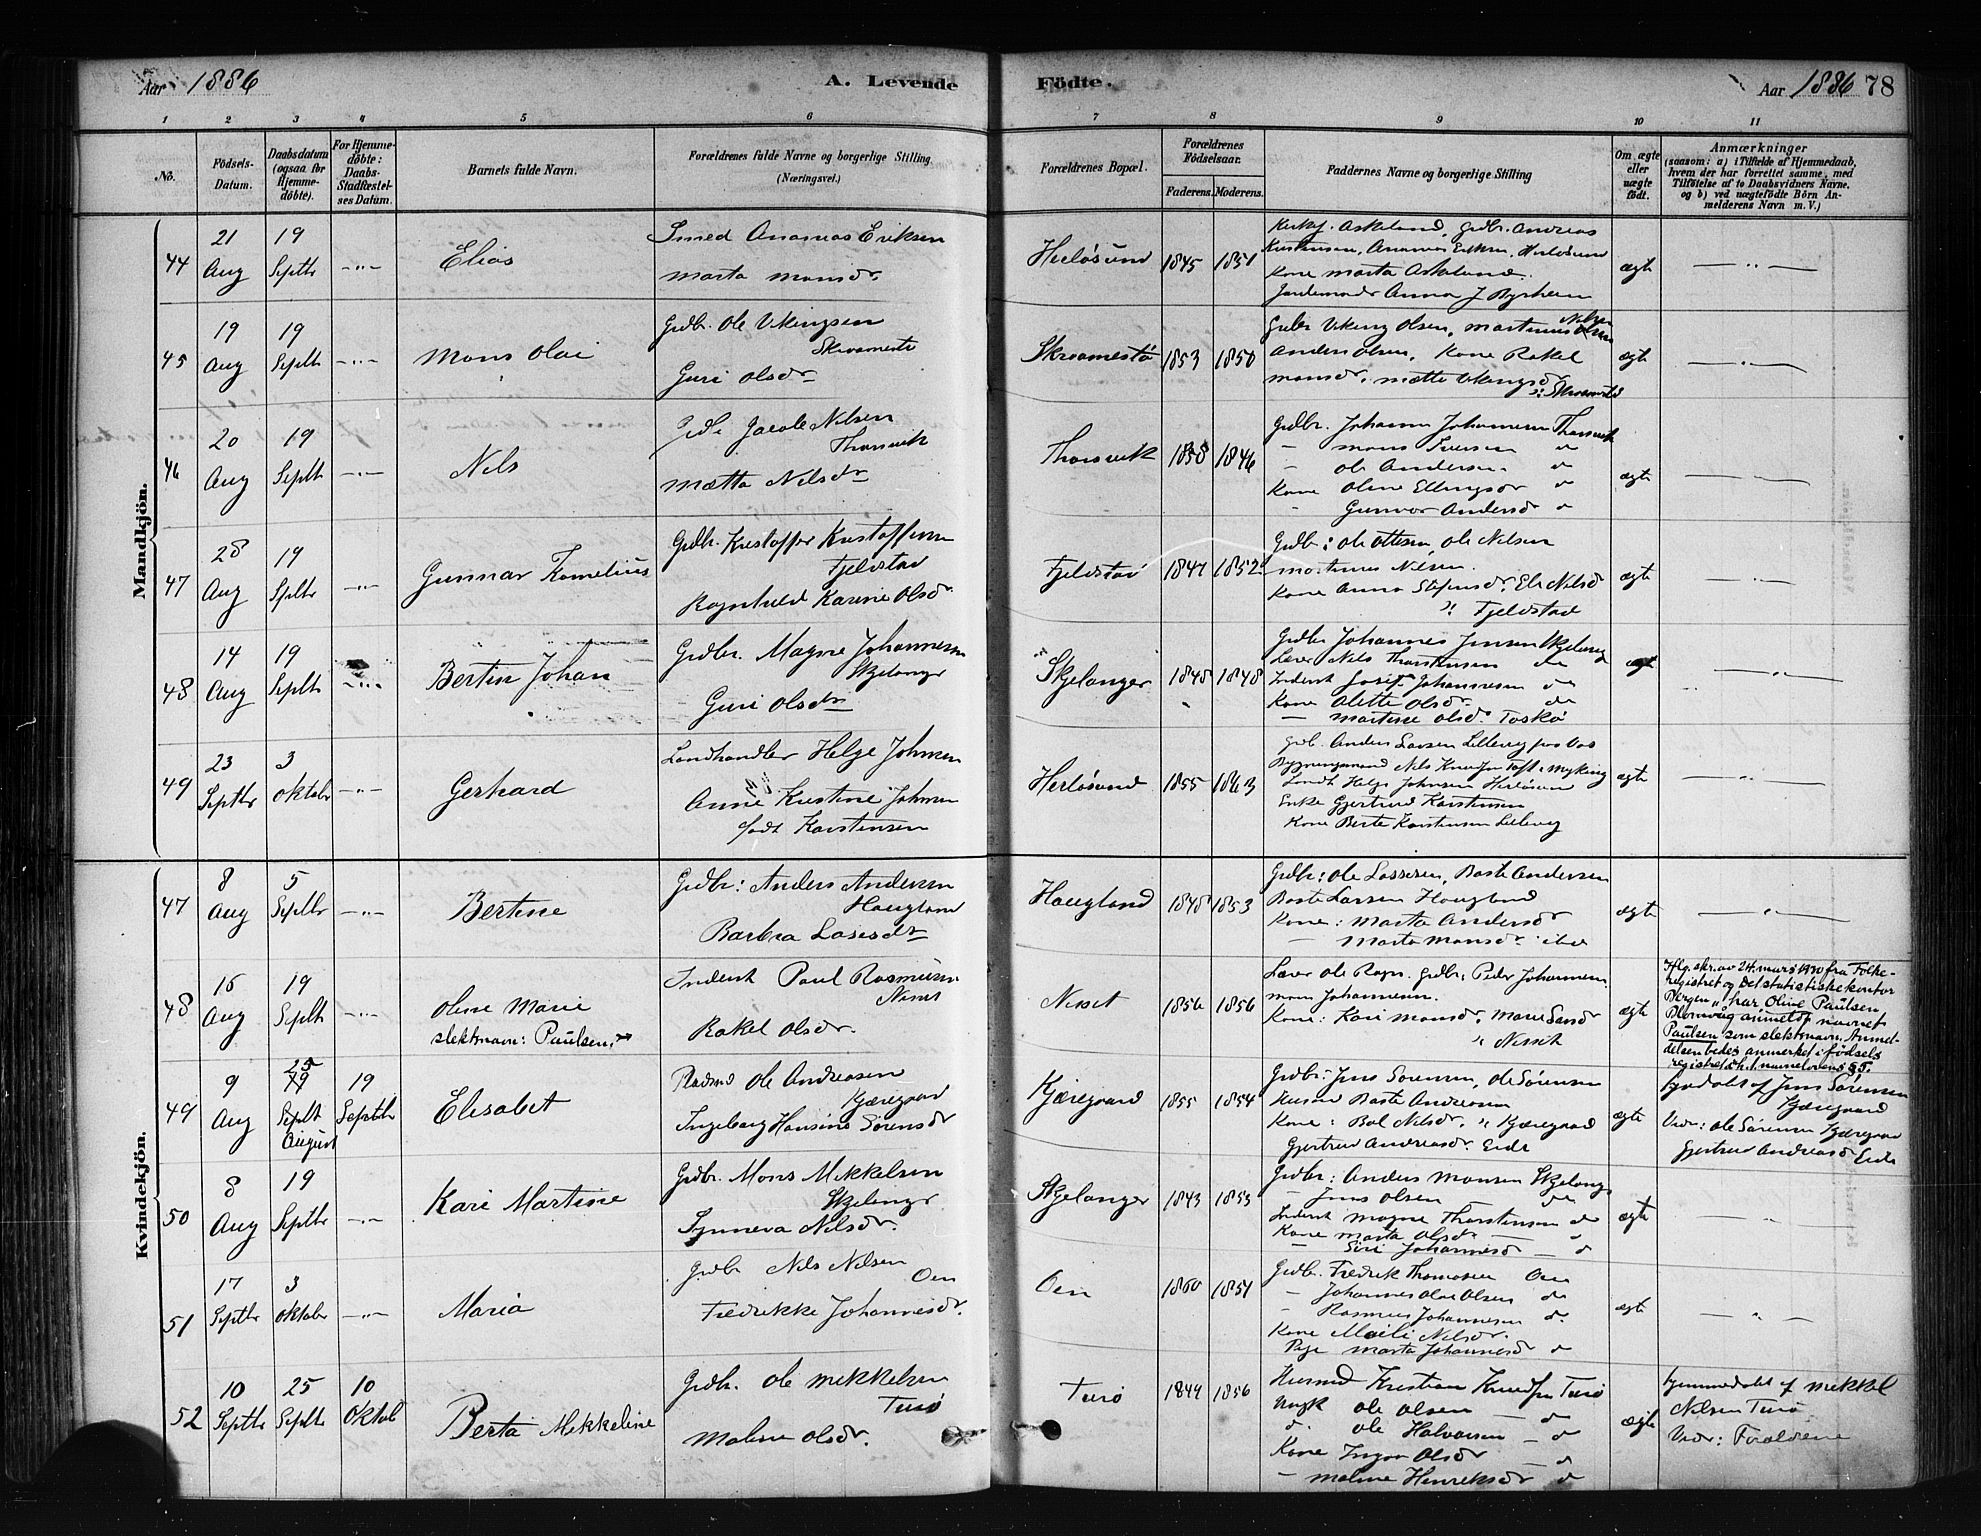 Aar 1886
A. Levende
Födte.
Aar 1886 78
1 2 3 4 5 6 7 8 9 10 11
No.
Födsels-Datum.
Daabsdatum (ogsaa for Hjemme-döbte).
For Hjemme-döbte: Daabs-Stadfæstel-ses Datum.
Barnets fulde Navn.
Forældrenes fulde Navne og borgerlige Stilling. (Næringsvei.)
Forældrenes Bopæl.
Forældrenes Födselsaar.
Faderens. Moderens.
Faddernes Navne og borgerlige Stilling
Om ægte eller uægte födt.
Anmærkninger
(saasom: a) i Tilfælde af Hjemmedaab,
hvem der har forrettet samme, med
Tilföielse af to Daabsvidners Navne,
og b) ved uægtefödte Börn An-
melderens Navn m. V.)
Mandkjön.
44 21 Aug 19 Septbr -"- Elias
Smed Ananias Eriksen
Marta Monsdr.
Herløsund 1845 1851
Kirkes. Askeland, Grdbr. Andreas
Kristensen, Ananias Eriksen, Herløsund
Kone Marta Askeland.
Jordemoder Anna J Byrheim
ægte - " -
45 19 Aug 19 Septbr -"- Mons Olai
Grdbr. Ole Vikingsen
Skraamestø
Guri Olsdr
Skraamestø 1853 1850
Grdbr Viking Olsen, Martinus Nilsen
Anders Olsen, Kone Rakel
Monsdr, Mætte Vikingsdr
ægte - " -
46 20 Aug 19 Septbr -"- Nils
Jacob Nilsen
Thorsvik
Mætta Nilsdr
Thorsvik 1858 1846
Grdbr. Johannes Johannesen Thorsvik
- Mons Iversen do
- Ole Andersen do
Kone Oline Ellingsdr do
- Gunvor Andersdr do
ægte - " -
47 28 Aug 19 Septbr -"- Gunnar Kornelius
Grdbr. Kristoffer Kristoffersen
Fjeldstad
Ragnhild Karine Olsdr
Fjeldstad 1847 1852
Grdbr: Ole Ottesen, Ole Nilsen
Martinus Nilsen.
Kone Anna Stefensdr, Eli Nilsdr
" Fjeldstad
ægte - " -
48 14 Aug 19 Septbr -"- Bertin Johan
Grdbr. Magne Johannesen
Skjelanger
Guri Olsdr
Skjelanger 1848 1848
Grdbr Johannes Jensen Skjelanger
Lærer Nils Thorstensen do
Inderst Josef Johannesen do
Kone Olette Olsdr. do
- Martine Olsdr. Toskø
ægte - " -
49 23 Septbr 3 Oktobr -"- Gerhard
Landhandler Helge Johnsen
Anne Kristine Johnsen
født Karstensen
Herløsund 1855 1863
Grdb. Anders Larsen Lillevig paa Vos
Bygningsmand Nils Knudsen Toft i Myking
Landh. Helge Johnsen Herløsund
Enke Gjertrud Karstensen
Kone Berte Karstensen Lillevig
ægte - " -
Kvindekjön.
47 8 Aug 5 Septbr -"- Bertine
Grdbr: Anders Andersen
Haugland
Barbra Lassesdr
Haugland 1848 1853
Grdbr: Ole Lassesen, Baste Andersen
Baste Larsen Haugland
Kone: Marta Andersdr
- Marta Monsdr. ibd
ægte - " -
48 16 Aug 19 Septbr -"- Oline Marie
slektsnavn: Paulsen.
Inderst Paul Rasmusen
Nesset
Rakel Olsdr.
Nesset 1856 1856
Lærer Ole Rogn. Grdbr: Peder Johannesen
Mons Johannesen.
Kone: Kari Monsdr, Marie Larsdr
" Nesset
ægte
Iflg. skr. av 24. mars 1930 fra Folke-
registret og Det statistiske kontor
Bergen, har Olive Paulsen
Blomvåg anmeldt navnet
Paulsen som slektsnavn. Anmel-
delsen bedes anmerket i födsels
registret i h.t. navnelovens § 5.
49 9 Aug 25 19 Septbr August 19 Septbr Elisabet
Ole Andreasen
Kjæregaard
Ingeborg Hansine Sørensdr
Kjæregaard 1855 1854
Grdbr: Jens Sørensen, Ole Sørensen
Baste Andreasen
Kone: Bol Nilsdr. " Kjæregaard
Gjertrud Andreasdr. Eide
ægte
hjdøbt af Jens Sørensen
Kjæregaard
Vidr: Ole Sørensen Kjæregaard
Gjertrud Andreasdr Eide
50 8 Aug 19 Septbr -"- Kari Martine
Grdbr. Mons Mikkelsen
Skjelanger
Synneva Nilsdr.
Skjelanger 1843 1853
Grdbr: Anders Monsen Skjelanger
- Jens Olsen do
Inderst Magne Thorstensen do
Kone Marta Olsdr - do
- Siri Johannesdr - do
ægte - " -
51 17 Septbr 3 Oktober -"- Maria
Grdbr Nils Nilsen
Oen
Fredrikke Johannesdr.
Oen 1860 1851
Grdbr. Fredrik Thomasen Oen
- Johannes Olai Olsen do
- Rasmus Johannesen do.
Kone Maili Nilsdr.
Pige Marta Johannesdr do
ægte - " -
52 10 Septbr 25 Septbr 10 Oktob Berta Mikkeline
Grdbr. Ole Mikkelsen
Turø
Malene Olsdr.
Turø 1844 1856
Husmd Kristian Knudsen Turø
Ungk Ole Olsen - do
d. Ole Halvorsen - do
Kone Inger Olsdr - do
- Malene Henriksdr do
ægte
hjemmedøbt af Mikkel
Nilsen Turø
Vidr: Forældrene